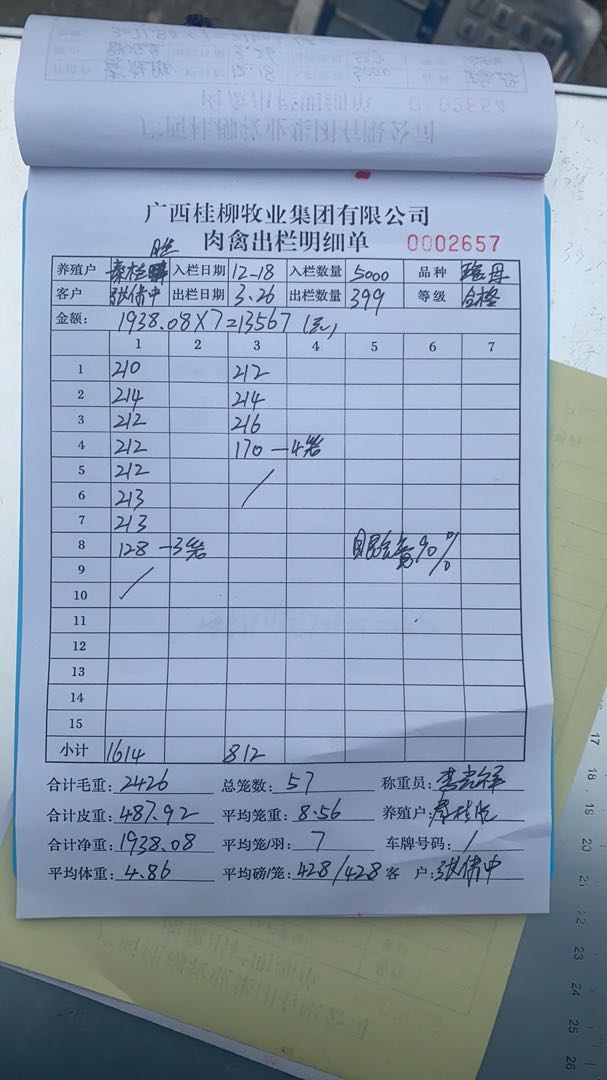 广西桂柳牧业集团有限公司
肉禽出栏明细单 0002657
胜
养殖户 秦桂 入栏日期 12-18 入栏数量 5000 品种
客户 张伟中 出栏日期 3.26 出栏数量 399 等级 合格
金额: 1938.08×7=13567(元)
1 2 3 4 5 6 7
1 210 212
2 214 214
3 212 216
4 212 170-4笼
5 212
6 213 /
7 213
8 128-3笼 90%
9
10 /
11
12
13
14
15
小计 1614 812
合计毛重: 2426 总笼数: 57 称重员:
合计皮重: 487.92 平均笼重: 8.56 养殖户: 秦桂
合计净重: 1938.08 平均笼/羽: 7 车牌号码: /
平均体重: 4.86 平均磅/笼: 428/428 客 户: 张伟中
17
18
19
20
21
22
23
24
25
26